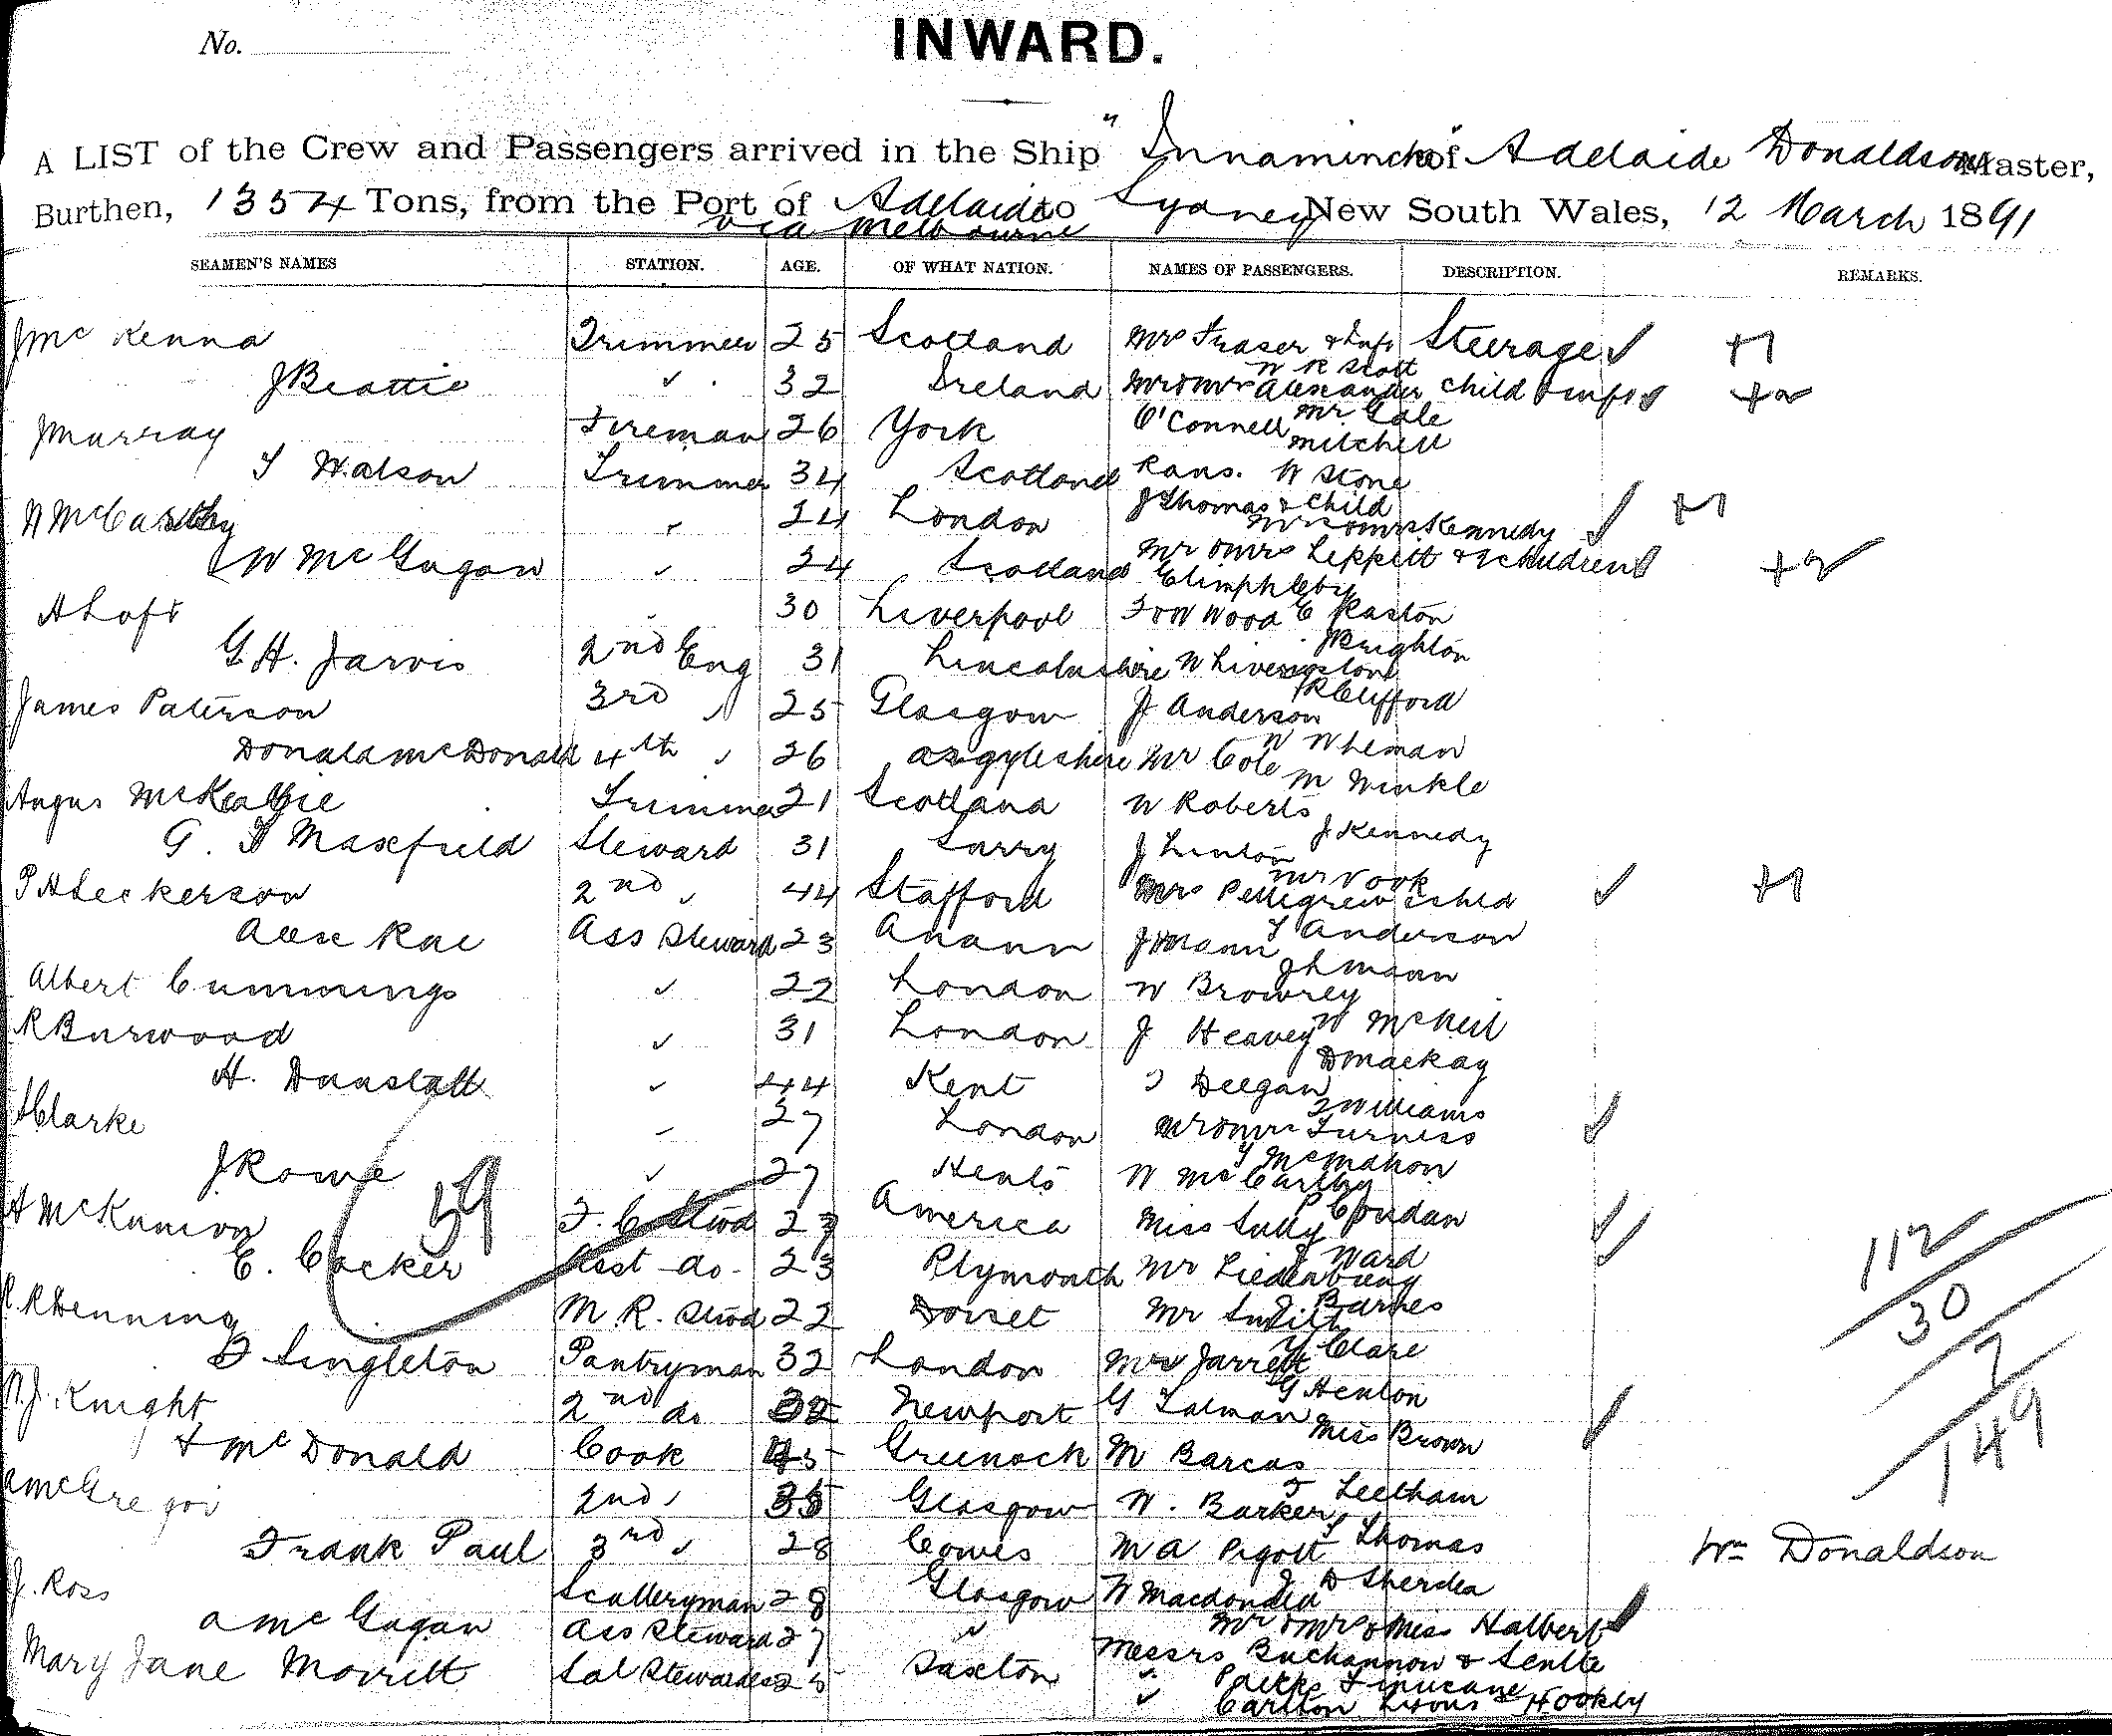 No.
INWARD.
A LIST of the Crew and Passengers arrived in the Ship "Innamincka" of Adelaide Donaldson Master,
Burthen, 1354 Tons, from the Port of Adelaide to Sydney New South Wales, 12 March 1891
via Melbourne
SEAMEN'S NAMES STATION. AGE. OF WHAT NATION. NAMES OF PASSENGERS. DESCRIPTION. REMARKS.
J McKenna Trimmer 25 Scotland Mrs Fraser & Inft Steerage ✓ +1
W R Scott
J Beattie ✓ 32 Ireland Mr & Mrs Alexander child & inft ✓ +2
Mr Gale
J Murray Fireman 26 York O'Connell
Mitchell
T Watson Trimmer 34 Scotland Rans. W Stone
J Thomas & Child
W McCarthy 24 London Mr & Mrs Kennedy ✓ +1
W McGugan ✓ 24 Scotland Mr & Mrs Leppitt & 2 children +2
A Loft 30 Liverpool F & W Wood E Raston
J Brighton
G. H. Jarvis 2nd Eng 31 Lincolnshire W Livengstone
R Clifford
James Paterson 3rd 25 Glasgow J Anderson
W Wheman
Donald McDonald 4th 26 Argyleshire Mr Cole
M Winkle
Angus Trimmer 21 Scotland W Roberts
J Kennedy
G. F Masefield Steward 31 Surry J Linton
Mr Vook
2nd 44 Stafford Mrs Pellegrew child ✓ +1
T Anderson
Alex Rae Ass Steward 23 Anann J Mann
J H Mann
Albert Cummings ✓ 22 London W Browrey
W McNeil
R Burwood ✓ 31 London J Heavey
D Mackay
H. Dunstall ✓ 44 Kent Deegan
J Williams
A Clarke 27 London Mr & Mrs Furness ✓
McMahon
J Rowe ✓ 27 Kent W McCarthy
P Condan
A McKinnon F. C. Stwd 23 America Miss Sully ✓
59
J Ward
E. Cocker Asst do. 23 Plymouth Mr Liedenburg ✓
112
J. Barnes
R Denning M R. Stwd 22 Dorset Mr Smith
30
Y Clare
F Singleton Pantryman 32 London Mrs Jarrett
7
G Henton
W. J. Knight 2nd do Newport G Salmon
149
Miss Brown ✓
McDonald Cook Greenock M Barcas
F Leetham
A McGregor 2nd Glasgow W. Barker
T Thomas
Frank Paul 3rd 28 Cowes M A Pigott
Wm Donaldson
J D
J. Ross Scalleryman 28 Glasgow W Macdonald
Mr & Mrs & Miss Halbert ✓
A McGugan Ass Steward 27
Messrs Buchannow &
Mary Jane Morritt Sal Stewardess 25 Saxton
Parks Finucane
Carlton Lyons & Hookly